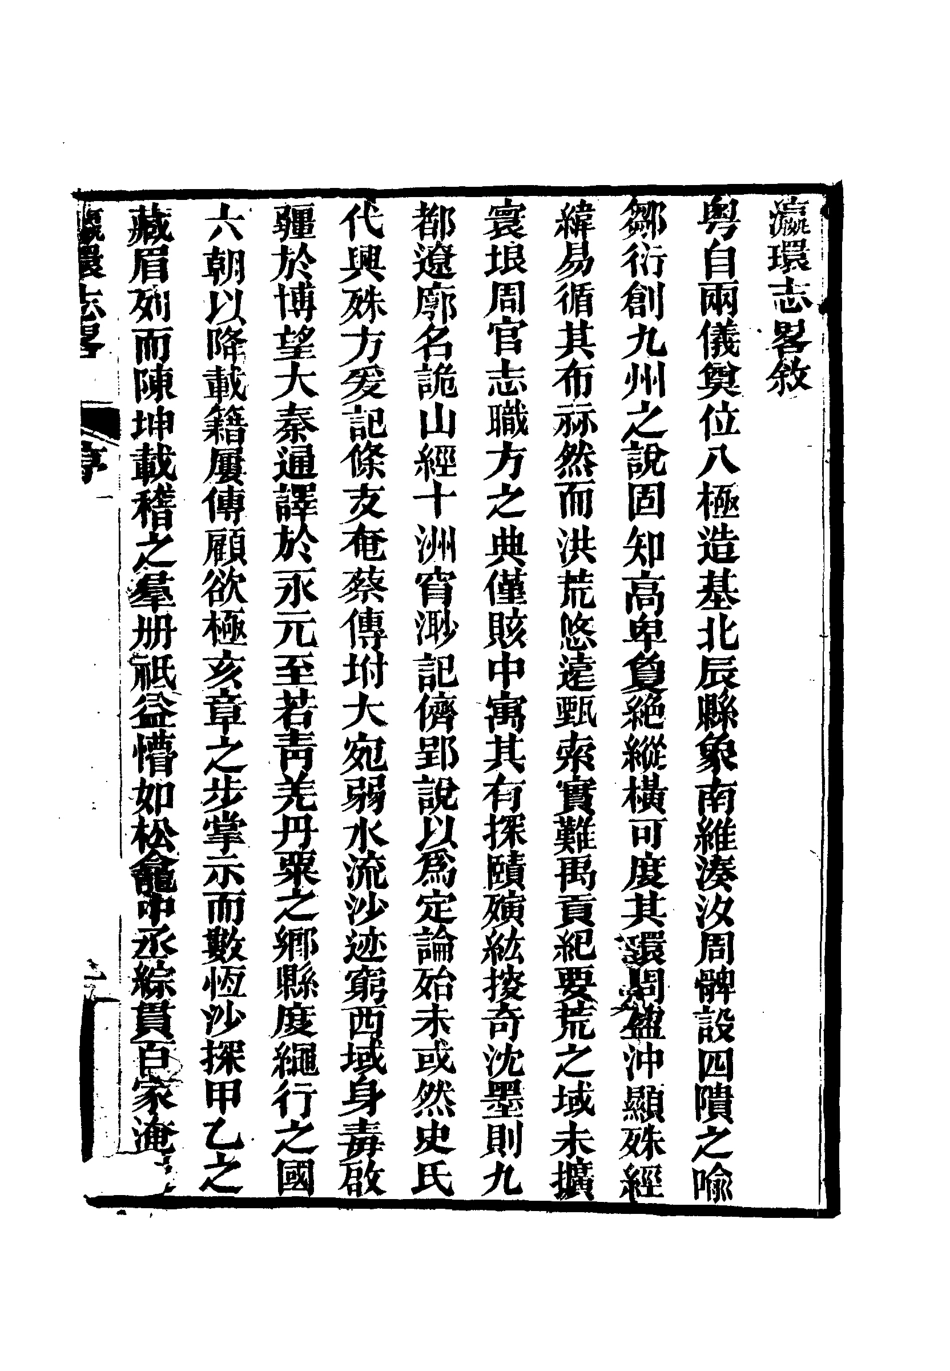 瀛環志畧敘
粤自兩儀奠位八極造基北辰縣象南維湊汝周髀設四隤之喩
鄒衍創九州之說固知高卑敻絕縱橫可度其環周盈沖顯殊經
緯易循其布祘然而洪荒悠遠甄索實難禹貢紀要荒之域未擴
寰埌周官志職方之典僅賅中寓其有探賾殯紘掞奇沈墨則九
都遼廓名詭山經十洲窅渺記儕郢說以爲定論始未或然史氏
代興殊方爰記條支奄蔡傳坿大宛弱水流沙迹窮西域身毒啟
疆於博望大秦通譯於永元至若靑羌丹粟之鄉縣度繩行之國
六朝以降載籍屢傳顧欲極亥章之步掌示而數恆沙探甲乙之
藏眉列而陳坤載稽之羣册祇益懵如松龕中丞綜貫百家淹
瀛環志畧 序 一